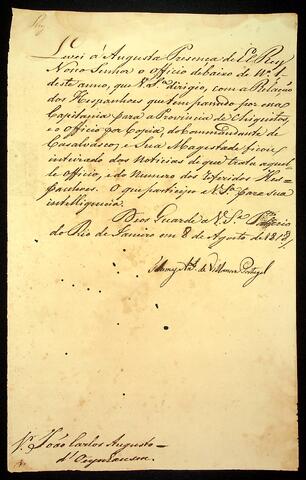 Levei à Augusta Presença de El Rey
Nosso Senhor o Officio debaixo de Nº 1
deste anno, que V. Sª dirigio, com a Relação
dos Hespanhoes que tem passado por essa
Capitania para a Provincia de Chiquitos,
e o Officio por Copia, do Commandante de
Casalvasco; e Sua Magestade ficou
inteirado das Noticias de que trata aquel-
le Officio, e do Numero dos referidos Hes-
panhoes. O que participo a V. Sª para sua
intelligencia.
Deos Guarde a V. Sª Palacio
do Rio de Janeiro em 8 de Agosto de 1818
Thomaz Antº de Villanova Portugal
Sr. João Carlos Augusto
d'Oeynhausen.